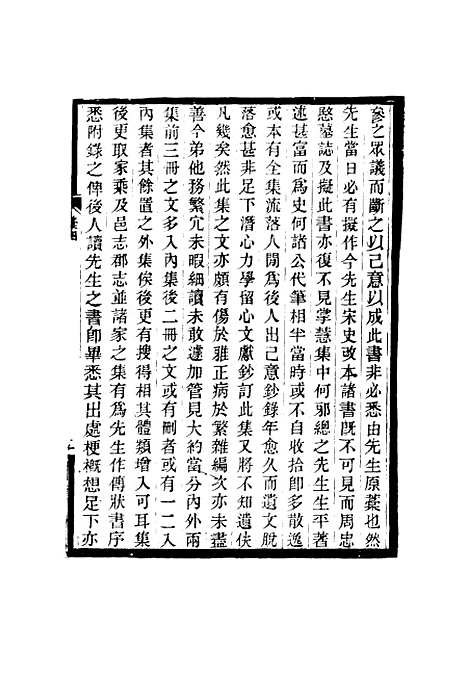 參之眾議而斷之以己意以成此書非必悉由先生原藁也然
先生當日必有擬作今先生宋史改本諸書旣不可見而周忠
愍墓誌及擬此書亦復不見掌慧集中何邪總之先生生平著
述甚富而爲史何諸公代筆相半當時或不自收拾卽多散逸
或本有全集流落人閒爲後人出己意鈔錄年愈久而遺文脫
落愈甚非足下潛心力學留心文獻鈔訂此集又將不知遺佚
凡幾矣然此集之文亦頗有傷於雅正病於繁雜編次亦未盡
善今弟他務繁冗未暇細讀未敢遽加管見大約當分內外兩
集前三冊之文多入內集後二冊之文或有刪者或有一二入
內集者其餘置之外集俟後更有搜得相其體類增入可耳集
後更取家乘及邑志郡志並諸家之集有爲先生作傳狀書序
悉附錄之俾後人讀先生之書卽畢悉其出處梗槪想足下亦